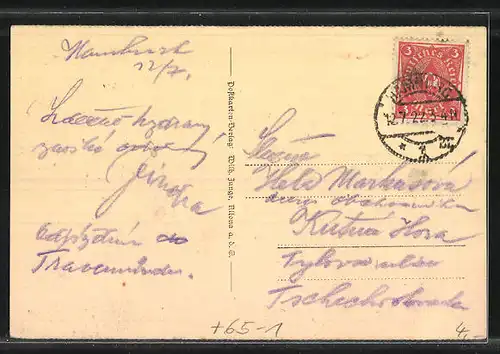 Hamburk
12/7.
Srdečné pozdravy
Jindra
Odjíždím do
Travemünde.
Postkarten-Verlag: Wilh. Junge, Altona a. d. E.
3
Deutsches Reich
HAMBURG
12.7.22.3-4N
Slečna
Hela Markusová
Kutná Hora
Tylova ulice
Tschechoslovakei
+65-1
4,-